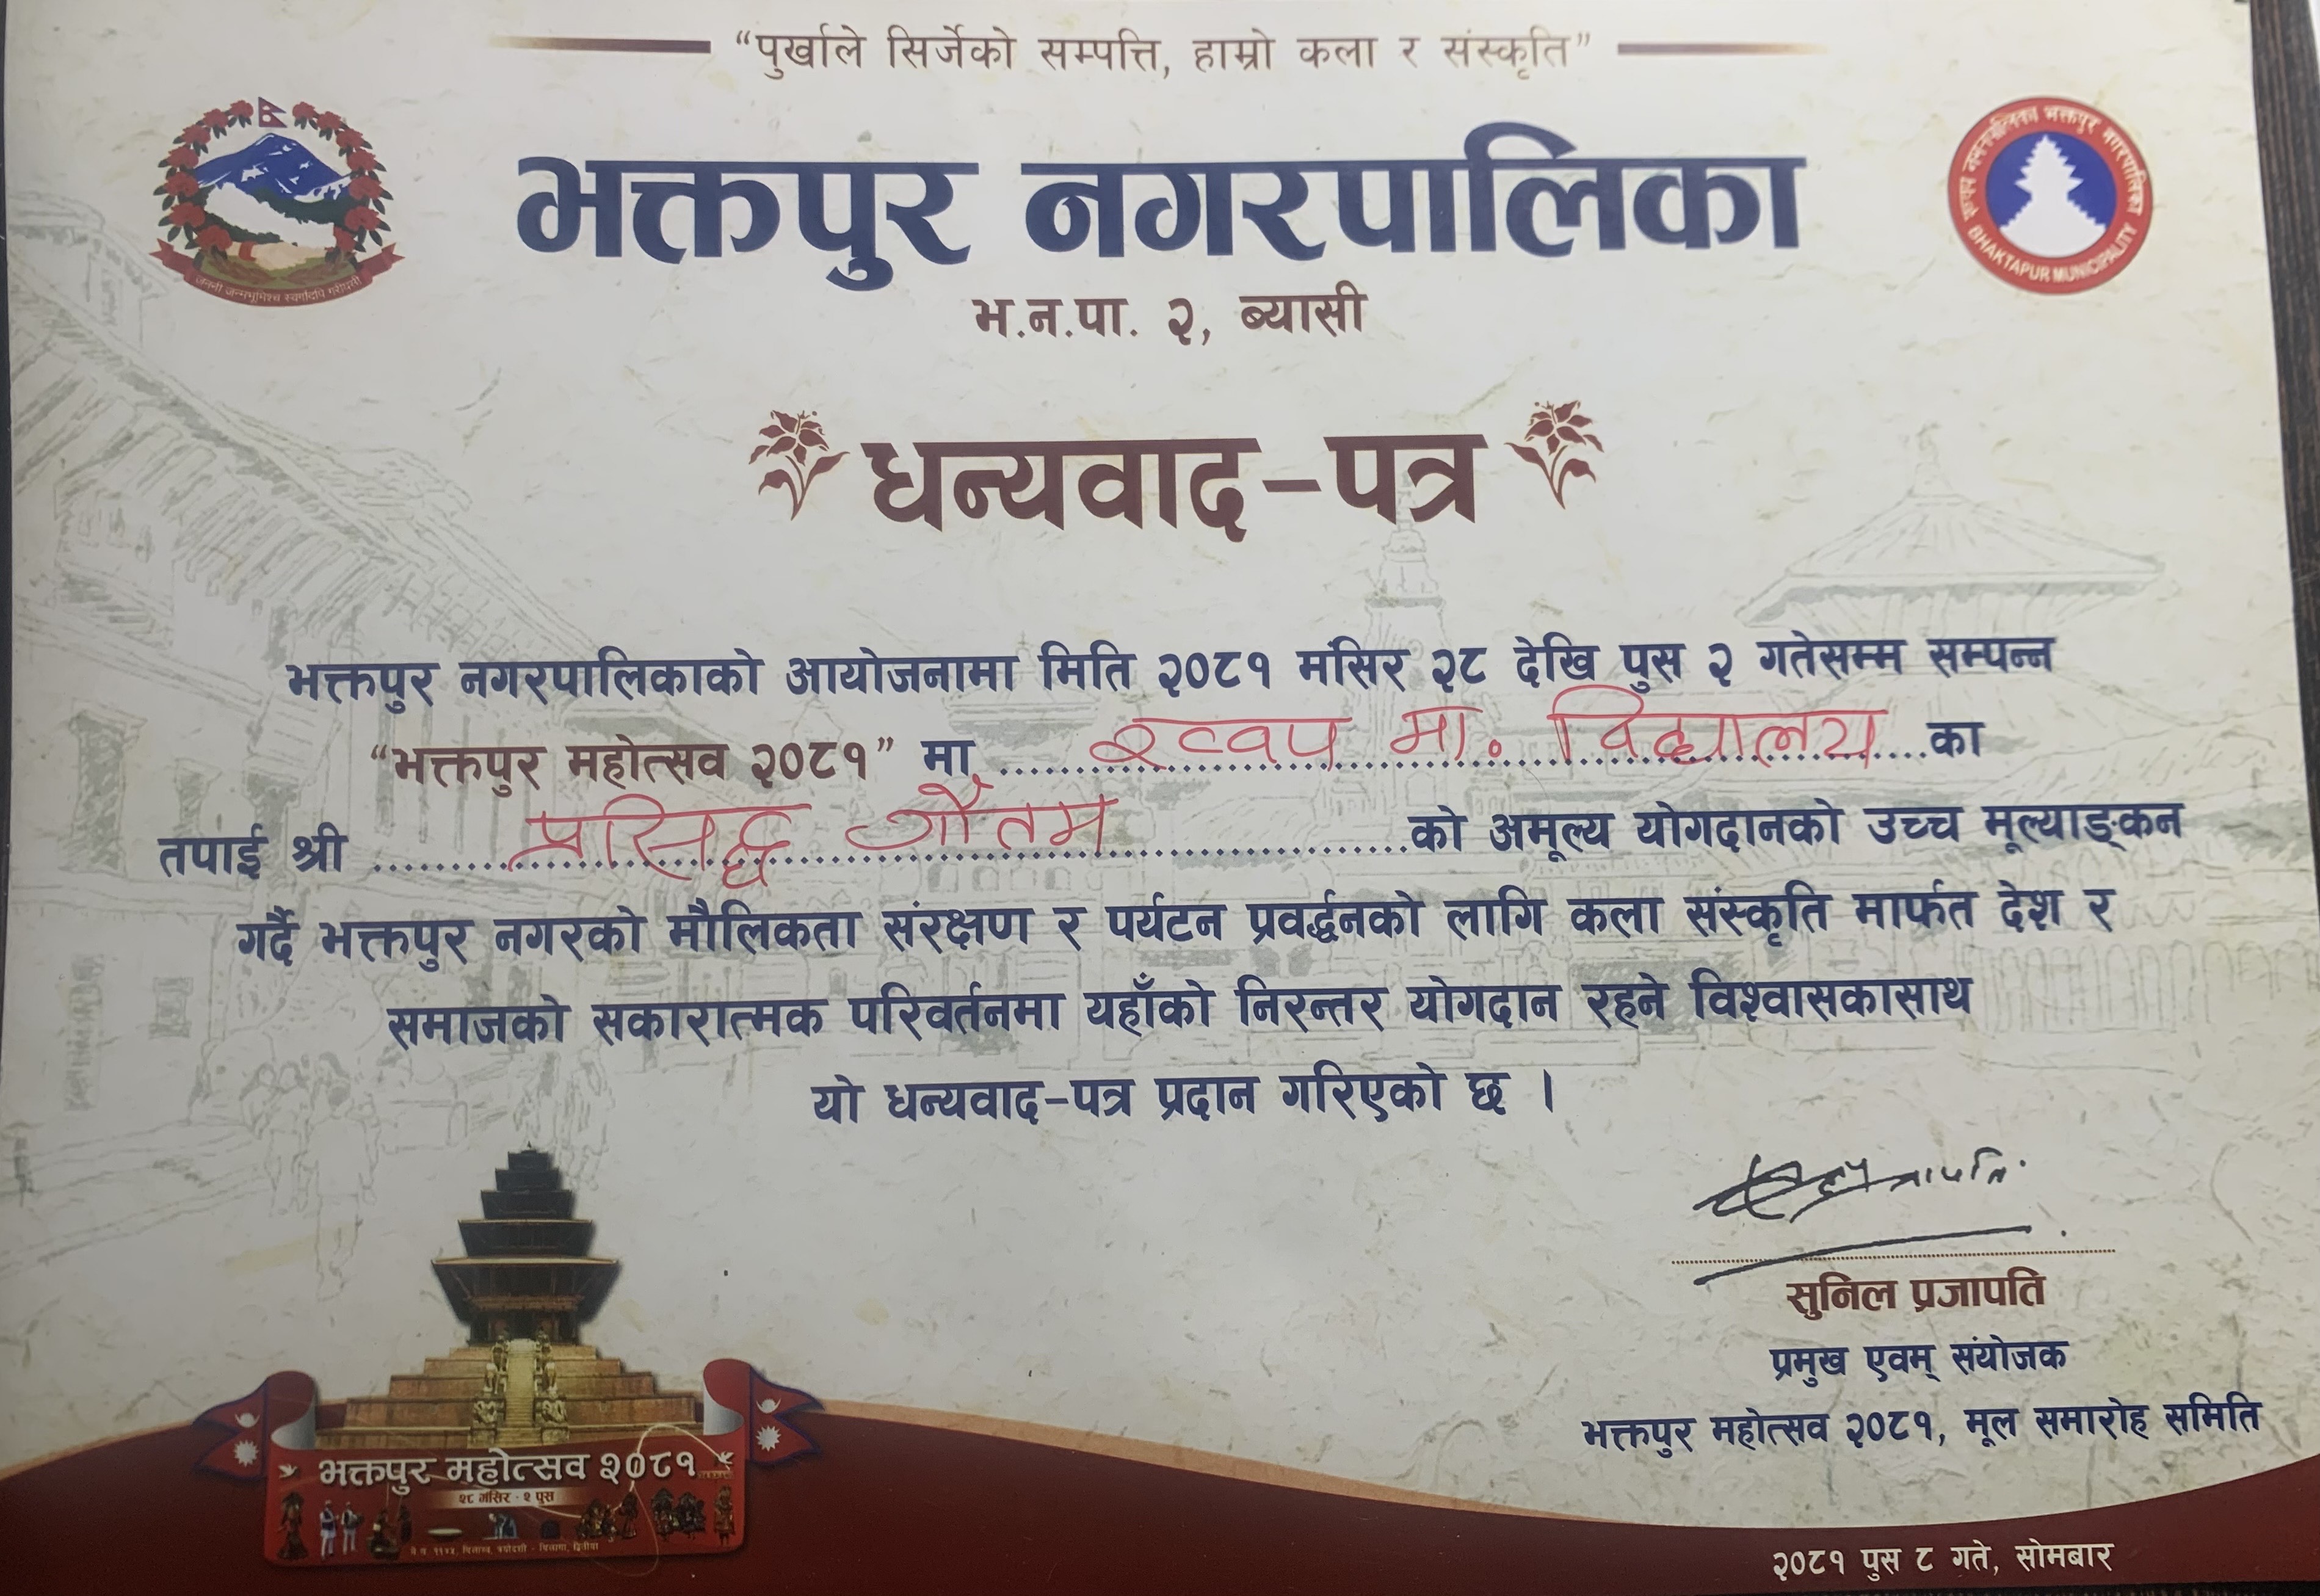 “पुर्खाले सिर्जेको सम्पत्ति, हाम्रो कला र संस्कृति”
भक्तपुर नगरपालिका
भ.न.पा. २, ब्यासी
जननी जन्मभूमिश्च स्वर्गादपि गरीयसी
भक्तपुर नगरपालिका
BHAKTAPUR MUNICIPALITY
धन्यवाद-पत्र
भक्तपुर नगरपालिकाको आयोजनामा मिति २०८१ मंसिर २८ देखि पुस २ गतेसम्म सम्पन्न
“भक्तपुर महोत्सव २०८१” मा, ख्वप मा. विद्यालय का
तपाई श्री प्रसिद्ध गौतम को अमूल्य योगदानको उच्च मूल्याङ्कन
गर्दै भक्तपुर नगरको मौलिकता संरक्षण र पर्यटन प्रवर्द्धनको लागि कला संस्कृति मार्फत देश र
समाजको सकारात्मक परिवर्तनमा यहाँको निरन्तर योगदान रहने विश्वासकासाथ
यो धन्यवाद-पत्र प्रदान गरिएको छ ।
सुनिल प्रजापति
प्रमुख एवम् संयोजक
भक्तपुर महोत्सव २०८१, मूल समारोह समिति
भक्तपुर महोत्सव २०८१
२८ मंसिर - २ पुस
२०८१ पुस ८ गते, सोमबार